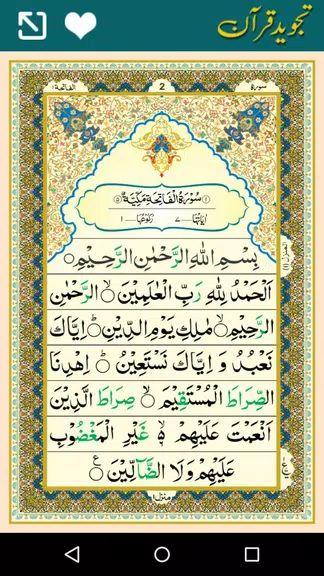 تجوید قرآن
سورة 2 الفاتحة ١
سُوْرَةُ الْفَاتِحَةِ مَكِّيَّةٌ
اٰيَاتُهَا ٧ رُكُوْعُهَا ١
بِسْمِ اللّٰهِ الرَّحْمٰنِ الرَّحِيْمِ
اَلْحَمْدُ لِلّٰهِ رَبِّ الْعٰلَمِيْنَ ۙ الرَّحْمٰنِ
الرَّحِيْمِ ۙ مٰلِكِ يَوْمِ الدِّيْنِ ؕ اِيَّاكَ
نَعْبُدُ وَ اِيَّاكَ نَسْتَعِيْنُ ؕ اِهْدِنَا
الصِّرَاطَ الْمُسْتَقِيْمَ ۙ صِرَاطَ الَّذِيْنَ
اَنْعَمْتَ عَلَيْهِمْ ۙ۬ غَيْرِ الْمَغْضُوْبِ
عَلَيْهِمْ وَلَا الضَّآلِّيْنَ
منزل ١